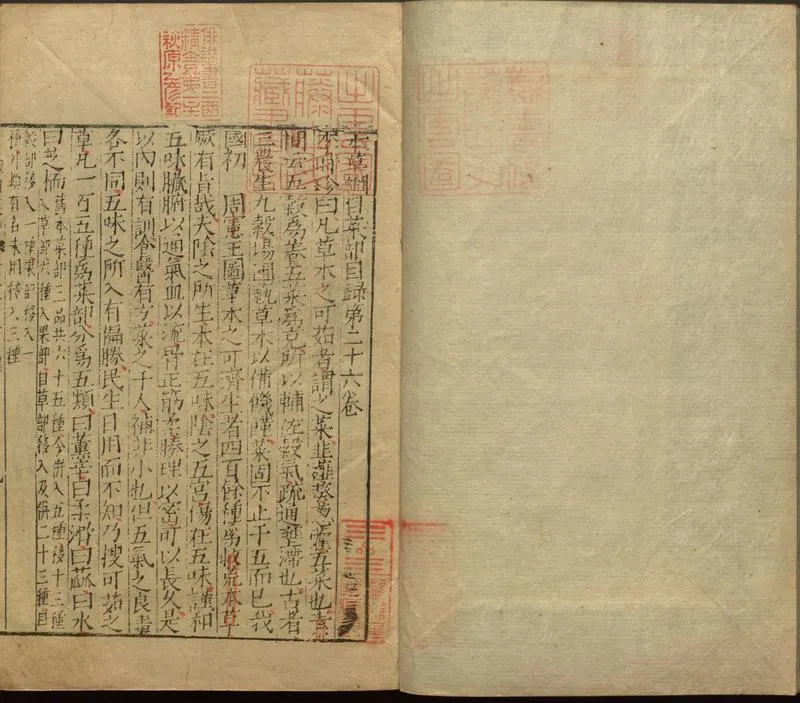 本草綱目菜部目錄第二十六卷
李時珍曰凡草木之可茹者謂之菜韭薤葵葱藿五菜也素
問云五穀爲養五菜爲充所以輔佐穀氣疏通壅滯也古者
三農生九穀場圃蓺草木以備饑饉菜固不止于五而已我
國初 周憲王圖草木之可濟生者四百餘種爲救荒本草
厥有旨哉夫陰之所生本在五味陰之五宮傷在五味謹和
五味臟腑以通氣血以流骨正筋柔腠理以密可以長久是
以內則有訓食醫有方菜之于人補非小也但五氣之良毒
各不同五味之所入有偏勝民生日用而不知乃搜可茹之
草凡一百五種爲菜部分爲五類曰薰辛曰柔滑曰蓏曰水
曰芝栭舊本菜部三品共六十五種今併入五種移十三種
入草部六種入果部自草部移入及併二十三種自
穀部移入一種果部移入一
種外類有名未用移入三種